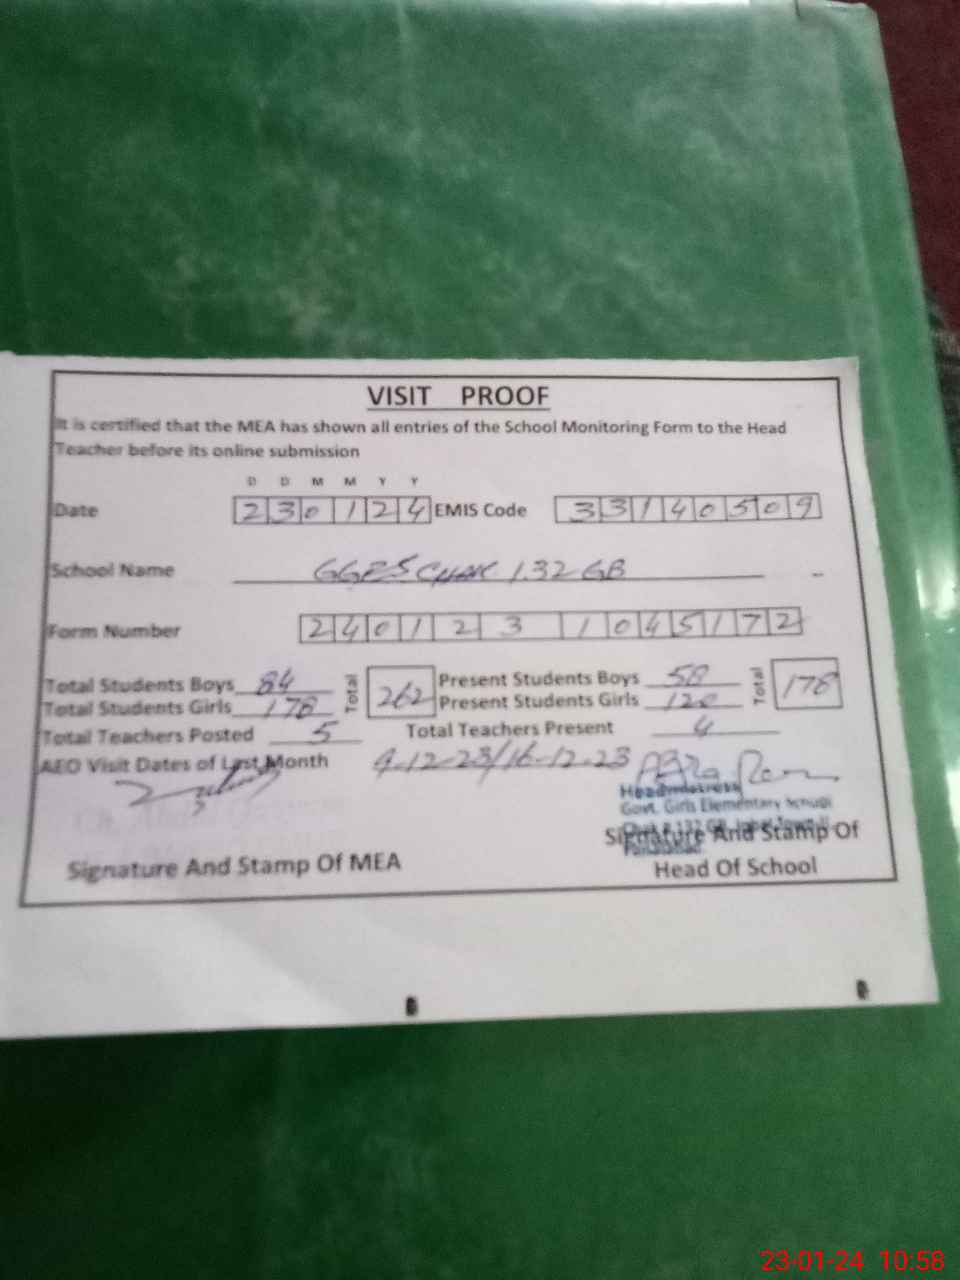 VISIT PROOF
It is certified that the MEA has shown all entries of the School Monitoring Form to the Head
Teacher before its online submission
D D M M Y Y
Date 230124 EMIS Code 33140509
School Name GGES CHAK 132 GB
Form Number 2401231045172
Total Students Boys 84 Total 262 Present Students Boys 58 Total 178
Total Students Girls 178 Present Students Girls 120
Total Teachers Posted 5 Total Teachers Present 4
AEO Visit Dates of Last Month 9-12-23/16-12-23
Headmistress
Govt. Girls Elementary School
Signature And Stamp Of
Signature And Stamp Of MEA Head Of School
23-01-24 10:58